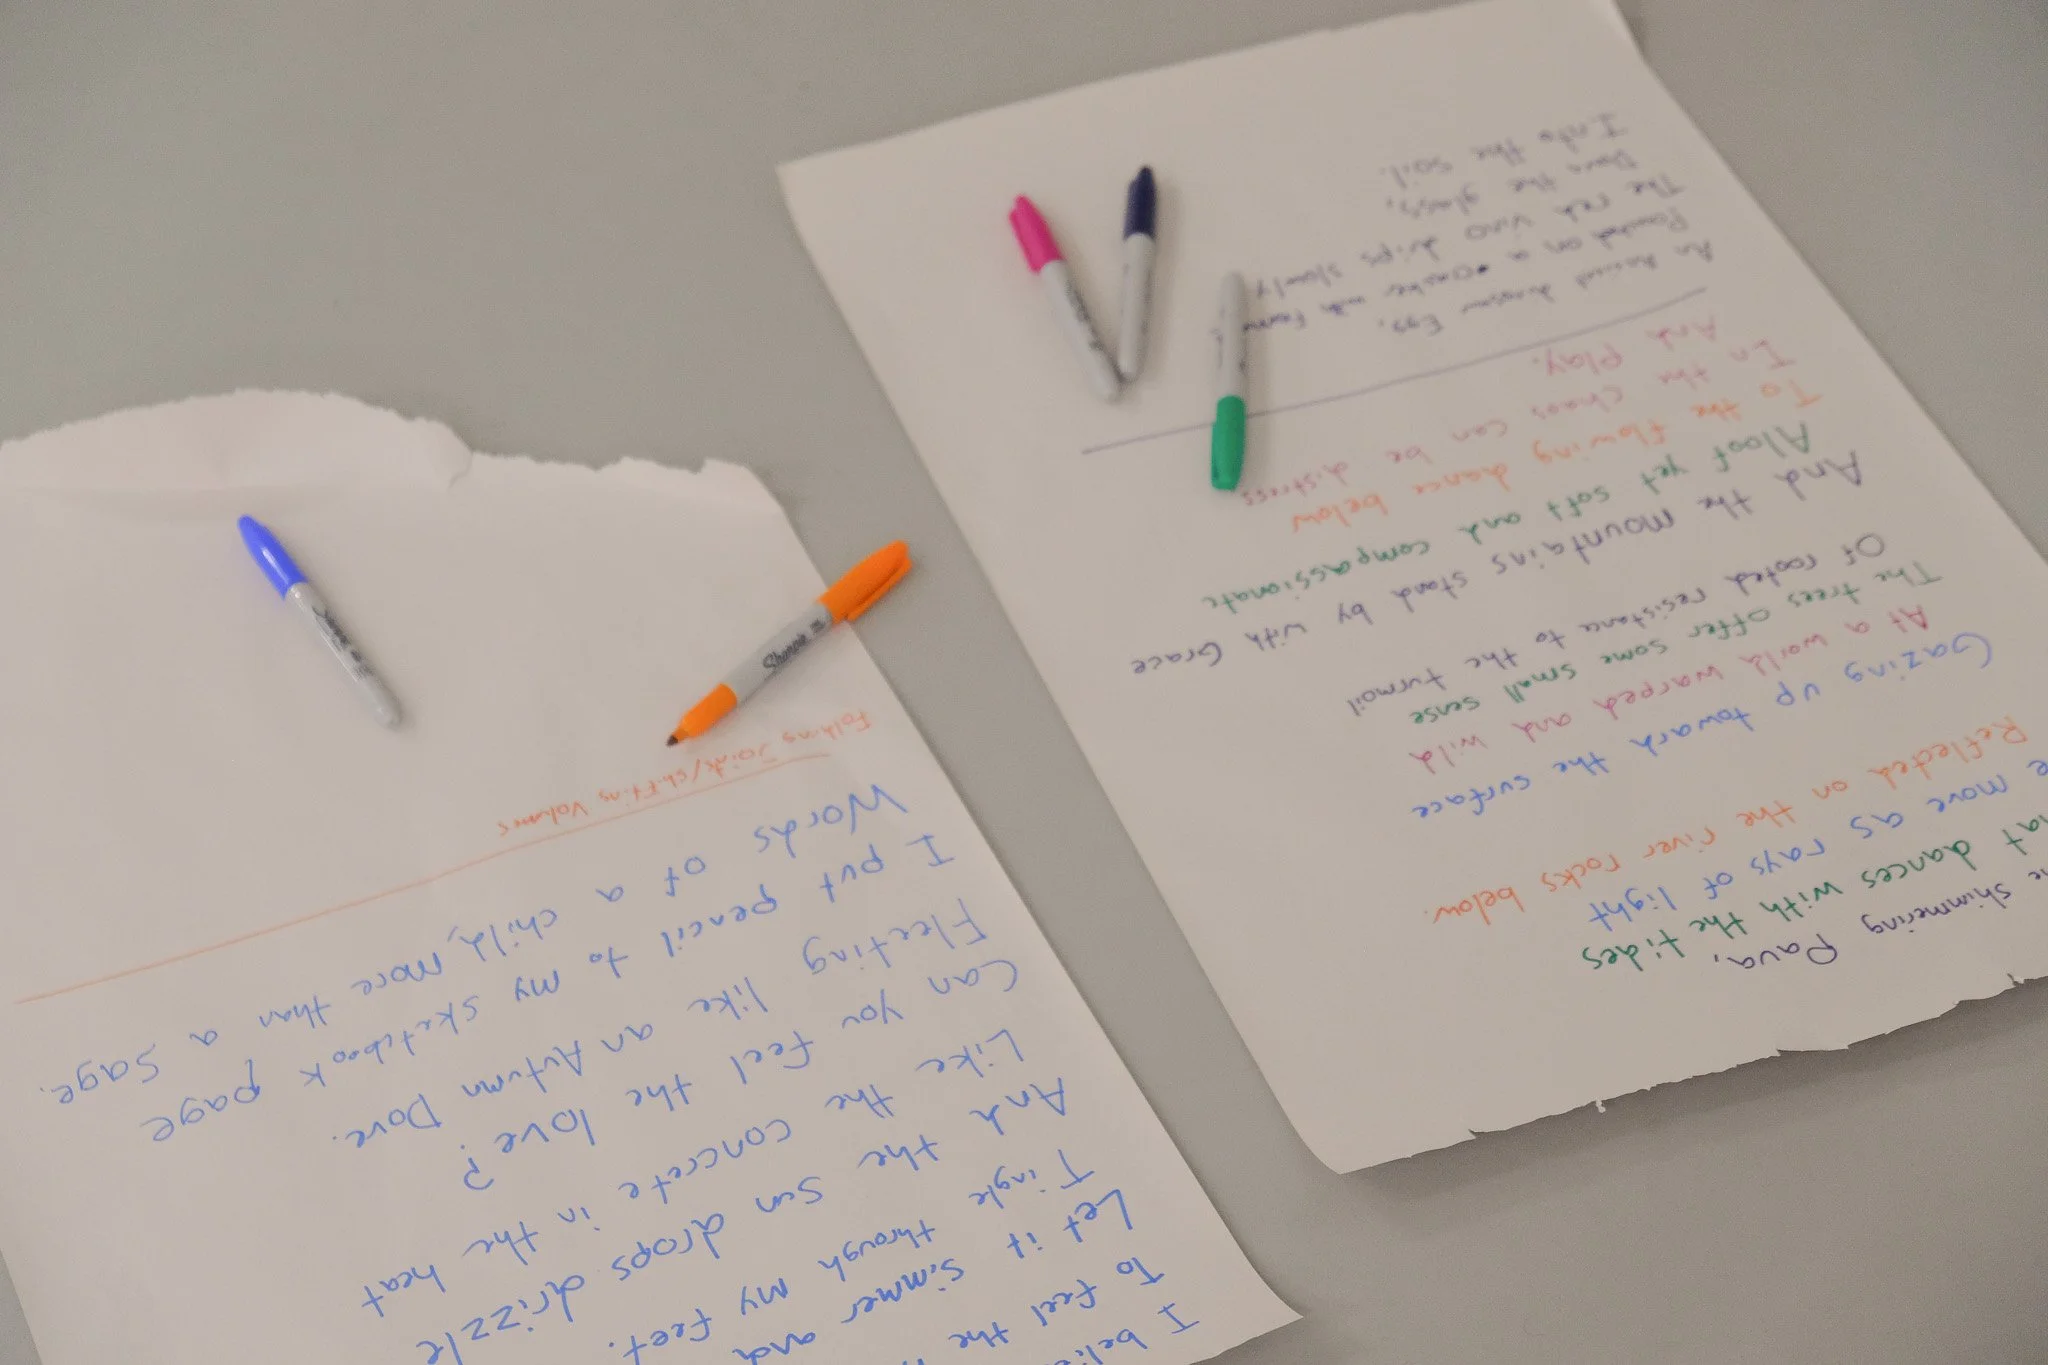 shimmering Pava,
dances with the tides
move as rays of light
Reflected on the river rocks below.
Gazing up toward the surface
At a world warped and wild
The trees offer some small sense
Of rooted resistance to the turmoil
And the mountains stand by with Grace
Aloof yet soft and compassionate
To the flowing dance below
In the chaos can be distress
And Play.
An Egg,
on a with
The red vino drips slowly
Down the glass,
Into the soil.
I
To feel the
Let it simmer and
Tingle through my feet.
And the sun drops drizzle
Like the concrete in the heat
Can you feel the love?
Fleeting like an Autumn Dove.
I put pencil to my sketchbook page
Words of a child, more than a sage.
Folking Joint/shifting Volumes
Sharpie